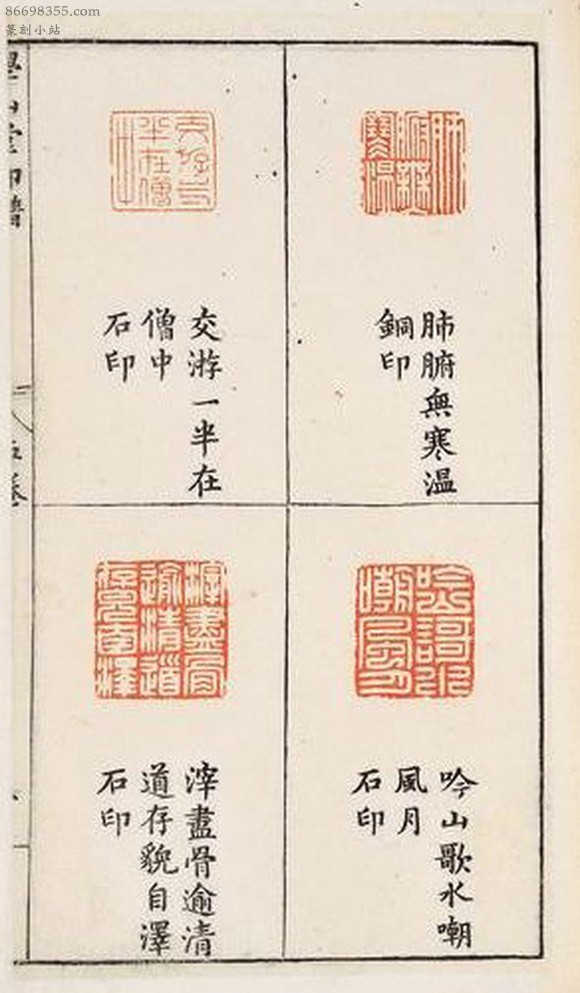 86698355.com
篆刻小站
肺腑無寒温
銅印
吟山歌水嘲
風月
石印
交游一半在
僧中
石印
滓盡骨逾清
道存貌自澤
石印